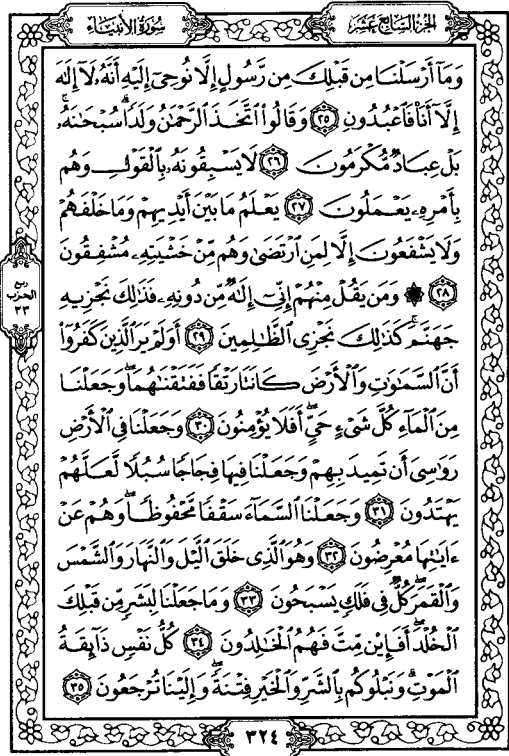 سُورَةُ الأَنبِيَاء
الجُزْءُ السَّابِعَ عَشَرَ
وَمَآ أَرۡسَلۡنَا مِن قَبۡلِكَ مِن رَّسُولٍ إِلَّا نُوحِىٓ إِلَيۡهِ أَنَّهُۥ لَآ إِلَٰهَ
إِلَّآ أَنَا۠ فَٱعۡبُدُونِ ٢٥ وَقَالُواْ ٱتَّخَذَ ٱلرَّحۡمَٰنُ وَلَدٗاۗ سُبۡحَٰنَهُۥۚ
بَلۡ عِبَادٞ مُّكۡرَمُونَ ٢٦ لَا يَسۡبِقُونَهُۥ بِٱلۡقَوۡلِ وَهُم
بِأَمۡرِهِۦ يَعۡمَلُونَ ٢٧ يَعۡلَمُ مَا بَيۡنَ أَيۡدِيهِمۡ وَمَا خَلۡفَهُمۡ
وَلَا يَشۡفَعُونَ إِلَّا لِمَنِ ٱرۡتَضَىٰ وَهُم مِّنۡ خَشۡيَتِهِۦ مُشۡفِقُونَ
٢٨ ۞ وَمَن يَقُلۡ مِنۡهُمۡ إِنِّىٓ إِلَٰهٞ مِّن دُونِهِۦ فَذَٰلِكَ نَجۡزِيهِ
جَهَنَّمَۚ كَذَٰلِكَ نَجۡزِى ٱلظَّٰلِمِينَ ٢٩ أَوَلَمۡ يَرَ ٱلَّذِينَ كَفَرُوٓاْ
أَنَّ ٱلسَّمَٰوَٰتِ وَٱلۡأَرۡضَ كَانَتَا رَتۡقٗا فَفَتَقۡنَٰهُمَاۖ وَجَعَلۡنَا
مِنَ ٱلۡمَآءِ كُلَّ شَىۡءٍ حَىٍّۖ أَفَلَا يُؤۡمِنُونَ ٣٠ وَجَعَلۡنَا فِى ٱلۡأَرۡضِ
رَوَٰسِىَ أَن تَمِيدَ بِهِمۡ وَجَعَلۡنَا فِيهَا فِجَاجٗا سُبُلٗا لَّعَلَّهُمۡ
يَهۡتَدُونَ ٣١ وَجَعَلۡنَا ٱلسَّمَآءَ سَقۡفٗا مَّحۡفُوظٗاۖ وَهُمۡ عَنۡ
ءَايَٰتِهَا مُعۡرِضُونَ ٣٢ وَهُوَ ٱلَّذِى خَلَقَ ٱلَّيۡلَ وَٱلنَّهَارَ وَٱلشَّمۡسَ
وَٱلۡقَمَرَۖ كُلّٞ فِى فَلَكٖ يَسۡبَحُونَ ٣٣ وَمَا جَعَلۡنَا لِبَشَرٖ مِّن قَبۡلِكَ
ٱلۡخُلۡدَۖ أَفَإِيْن مِّتَّ فَهُمُ ٱلۡخَٰلِدُونَ ٣٤ كُلُّ نَفۡسٖ ذَآئِقَةُ
ٱلۡمَوۡتِۗ وَنَبۡلُوكُم بِٱلشَّرِّ وَٱلۡخَيۡرِ فِتۡنَةٗۖ وَإِلَيۡنَا تُرۡجَعُونَ ٣٥
ربع
الحزب
٣٣
٣٢٤